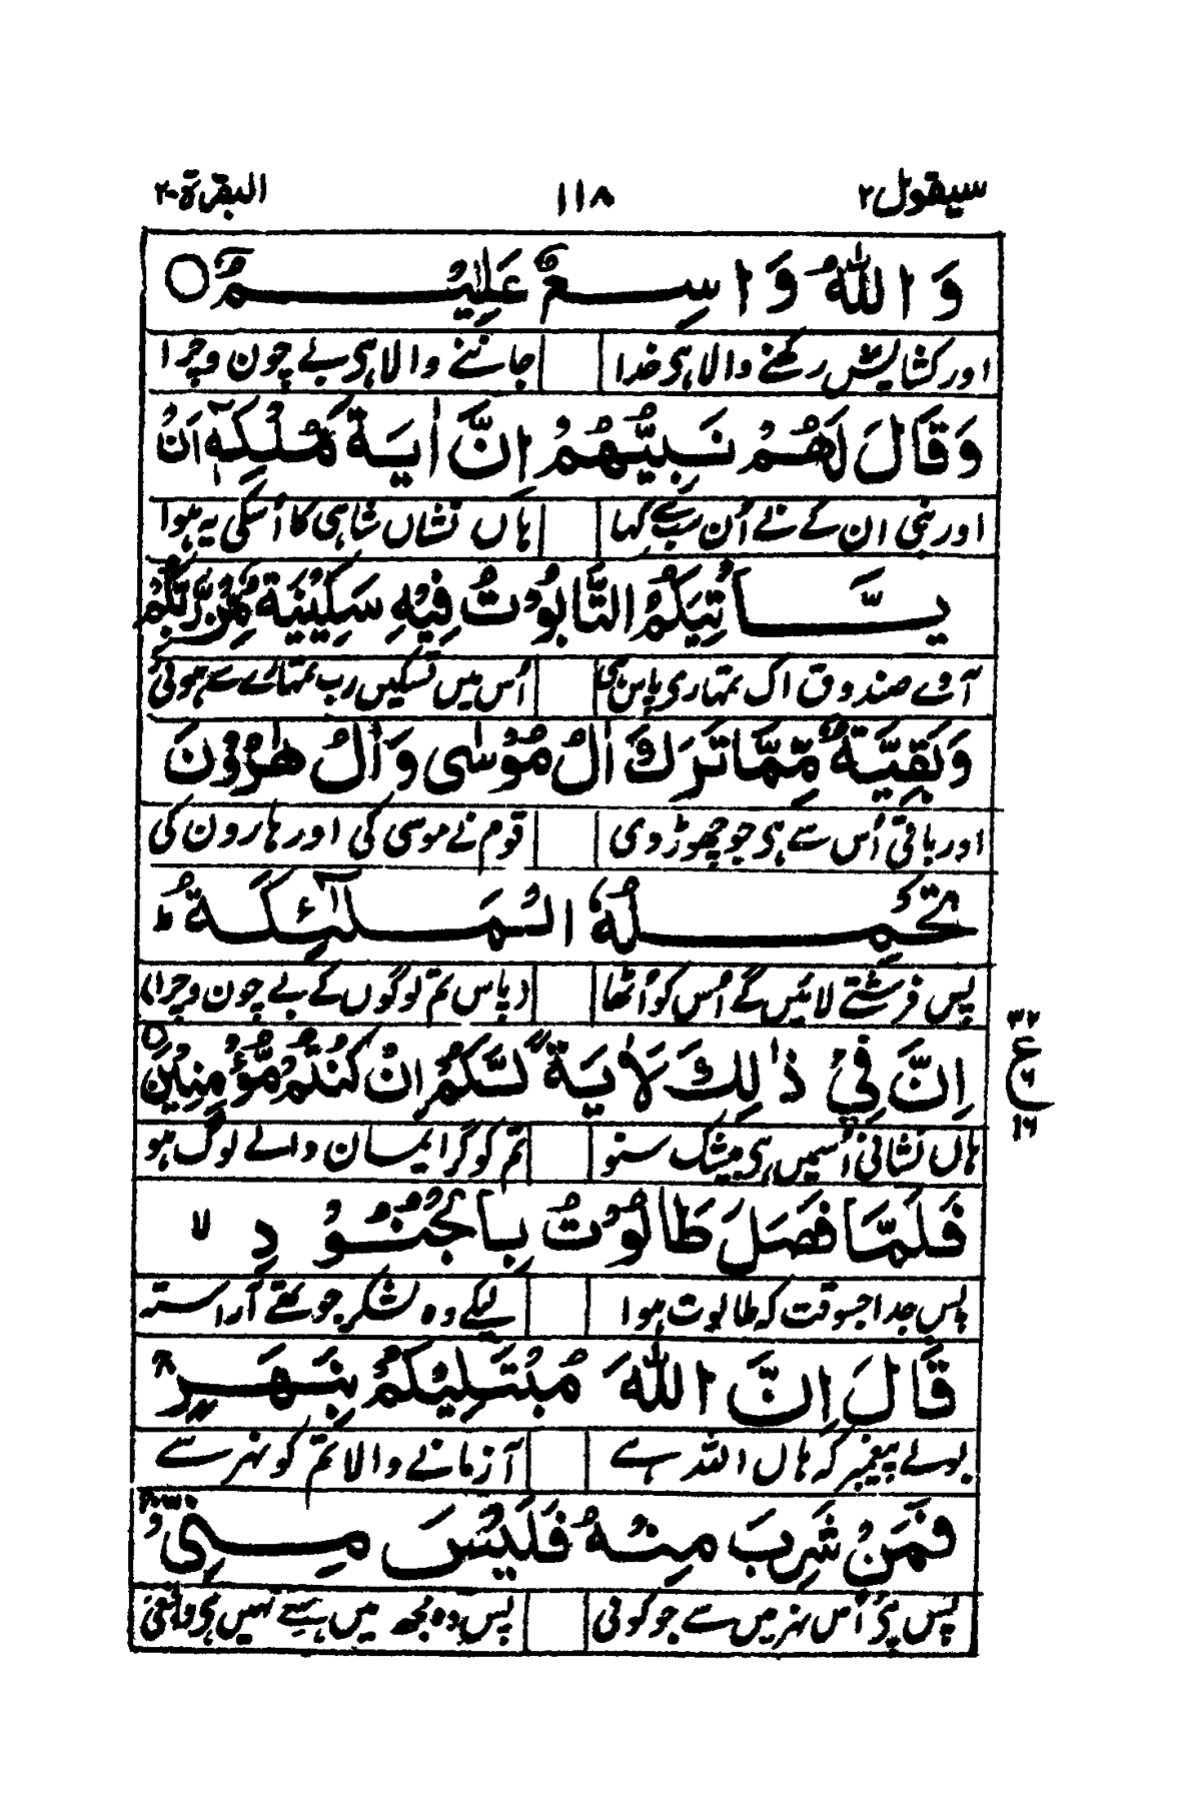 سیقول ۲ ۱۱۸ البقرة ۲۰
وَ اللّٰهُ وَ اسِعٌ عَلِيْمٌ ○
اور کشایش رکھنے والا ہی خدا جاننے والا ہی بے چون و چرا
وَ قَالَ لَهُمْ نَبِيُّهُمْ اِنَّ اٰيَةَ مُلْكِهٖۤ اَنْ
اور نبی ان کے نے اُن سے کہا ہاں نشاں شاہی کا اُسکی یہ ہوا
يَّاْتِيَكُمُ التَّابُوْتُ فِيْهِ سَكِيْنَةٌ مِّنْ رَّبِّكُمْ
آوے صندوق اک تمہاری پاس ہی اُس میں تسکیں رب تمہارے سے ہوئی
وَ بَقِيَّةٌ مِّمَّا تَرَكَ اٰلُ مُوْسٰى وَ اٰلُ هٰرُوْنَ
اور باقی اُس سے ہی جو چھوڑ دی قوم نے موسی کی اور ہارون کی
تَحْمِلُهُ الْمَلٰٓئِكَةُ ؕ
پس فرشتے لائیں گے اُس کو اُٹھا پاس تم لوگوں کے بے چون و چرا
اِنَّ فِيْ ذٰلِكَ لَاٰيَةً لَّكُمْ اِنْ كُنْتُمْ مُّؤْمِنِيْنَ ○
۳۲ ع ۱۶
ہاں نشانی اُسمیں ہی بیشک سنو تم کو گر ایمان والے لوگ ہو
فَلَمَّا فَصَلَ طَالُوْتُ بِالْجُنُوْدِ ۙ
پس جدا جسوقت کہ طالوت ہوا لیکے وہ لشکر جو تھے آراستہ
قَالَ اِنَّ اللّٰهَ مُبْتَلِيْكُمْ بِنَهَرٍ ۚ
بولے پیغمبر کہ ہاں اللہ ہے آزمانے والا تم کو نہر سے
فَمَنْ شَرِبَ مِنْهُ فَلَيْسَ مِنِّيْ ۚ
پس پی اُس نہر میں سے جو کوئی پس وہ مجھ میں سے نہیں ہی واقعی